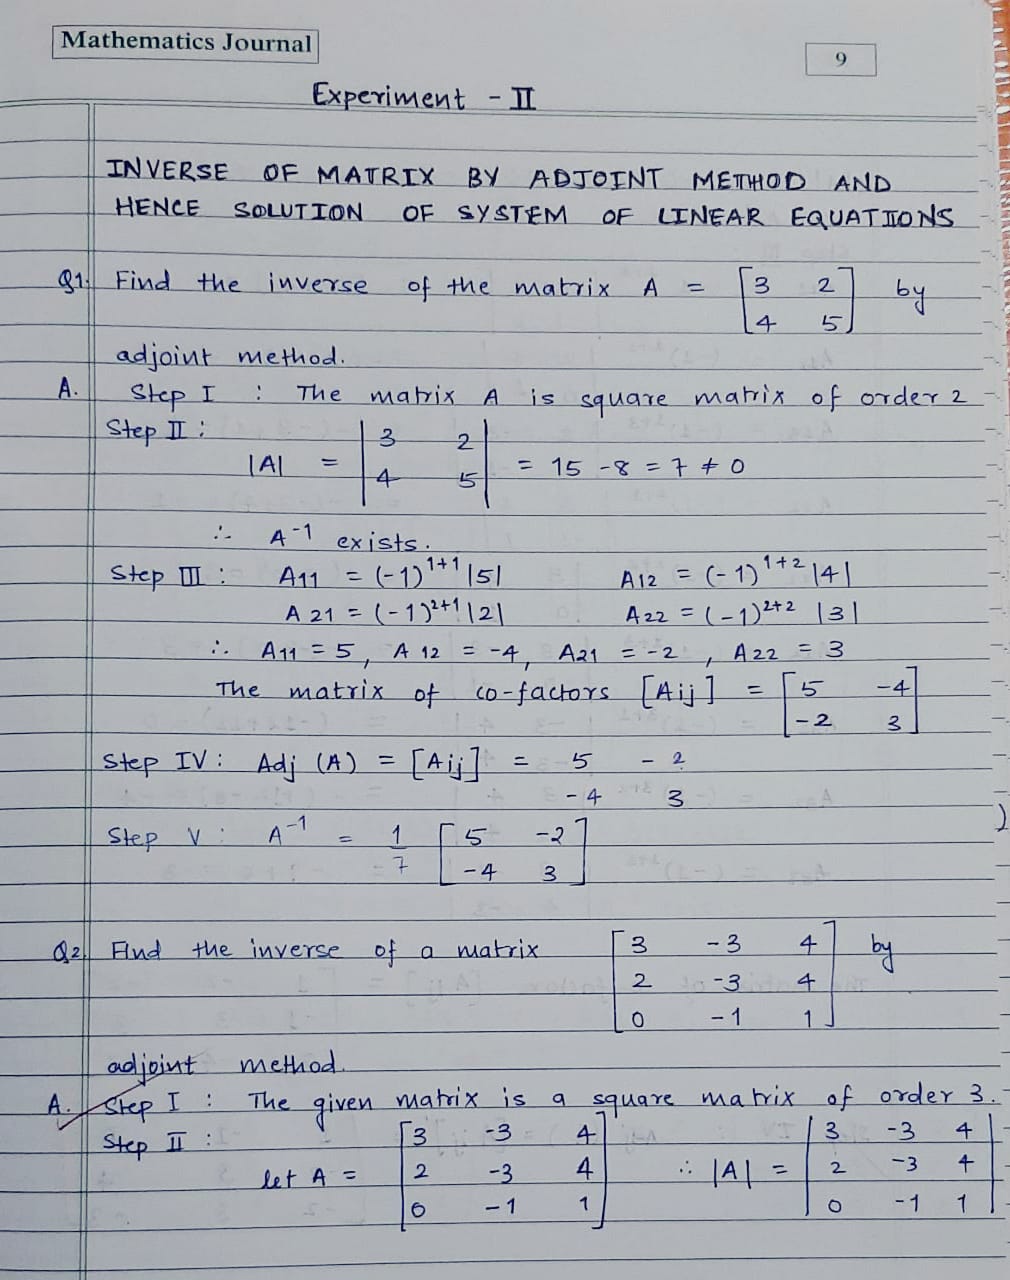 Mathematics Journal
9
Experiment - II
INVERSE OF MATRIX BY ADJOINT METHOD AND
HENCE SOLUTION OF SYSTEM OF LINEAR EQUATIONS
Q1. Find the inverse of the matrix A = [3 2] by
[4 5]
adjoint method.
A. Step I : The matrix A is square matrix of order 2
Step II :
|A| = |3 2| = 15 - 8 = 7 ≠ 0
|4 5|
∴ A⁻¹ exists.
Step III : A11 = (-1)¹⁺¹ |5| A12 = (-1)¹⁺² |4|
A21 = (-1)²⁺¹ |2| A22 = (-1)²⁺² |3|
∴ A11 = 5, A12 = -4, A21 = -2, A22 = 3
The matrix of co-factors [Aij] = [5 -4]
[-2 3]
Step IV : Adj (A) = [Aij] = 5 -2
-4 3
Step V : A⁻¹ = 1 [5 -2]
7 [-4 3]
Q2. Find the inverse of a matrix [3 -3 4] by
[2 -3 4]
[0 -1 1]
adjoint method.
A. Step I : The given matrix is a square matrix of order 3.
Step II : [3 -3 4] |3 -3 4|
let A = [2 -3 4] ∴ |A| = |2 -3 4|
[0 -1 1] |0 -1 1|